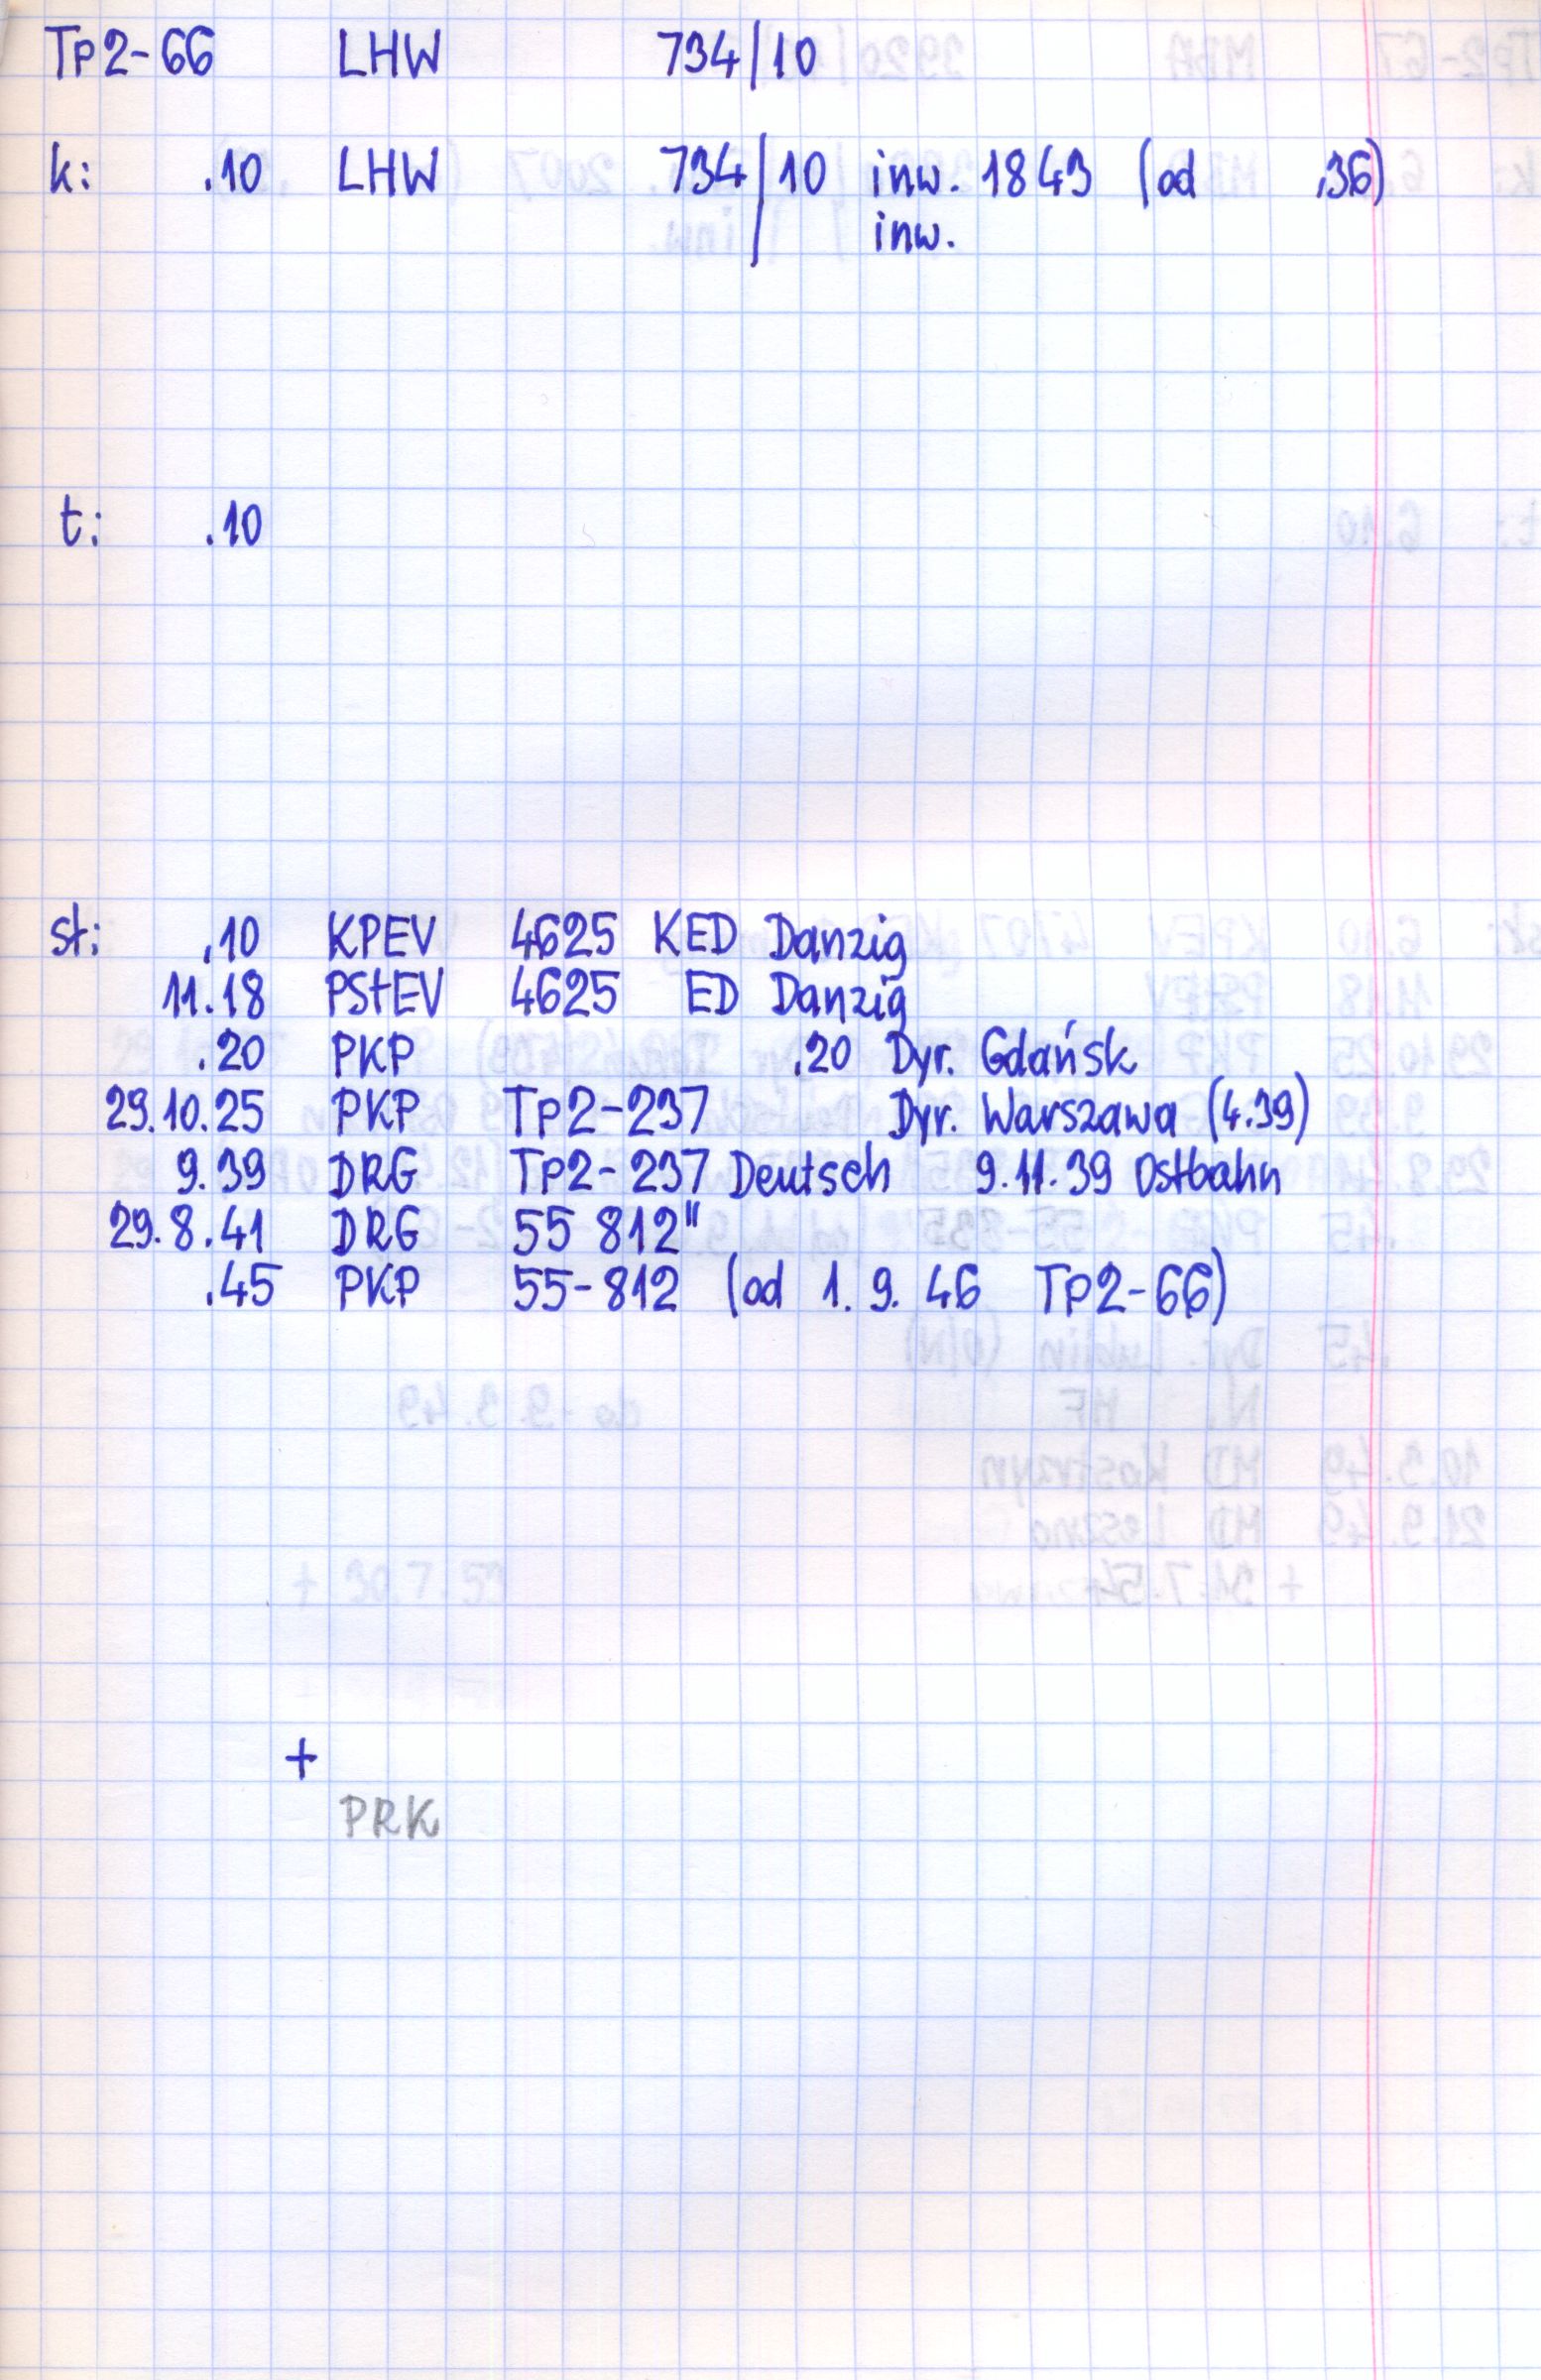 Tp2-66 LHW 734/10
k: .10 LHW 734/10 inw. 1843 (od .36)
inw.
t: .10
st: .10 KPEV 4625 KED Danzig
11.18 PStEV 4625 ED Danzig
.20 PKP .20 Dyr. Gdańsk
29.10.25 PKP Tp2-237 Dyr. Warszawa (4.39)
9.39 DRG Tp2-237 Deutsch 9.11.39 Ostbahn
29.8.41 DRG 55 812"
.45 PKP 55-812 (od 1.9.46 Tp2-66)
+
PRK